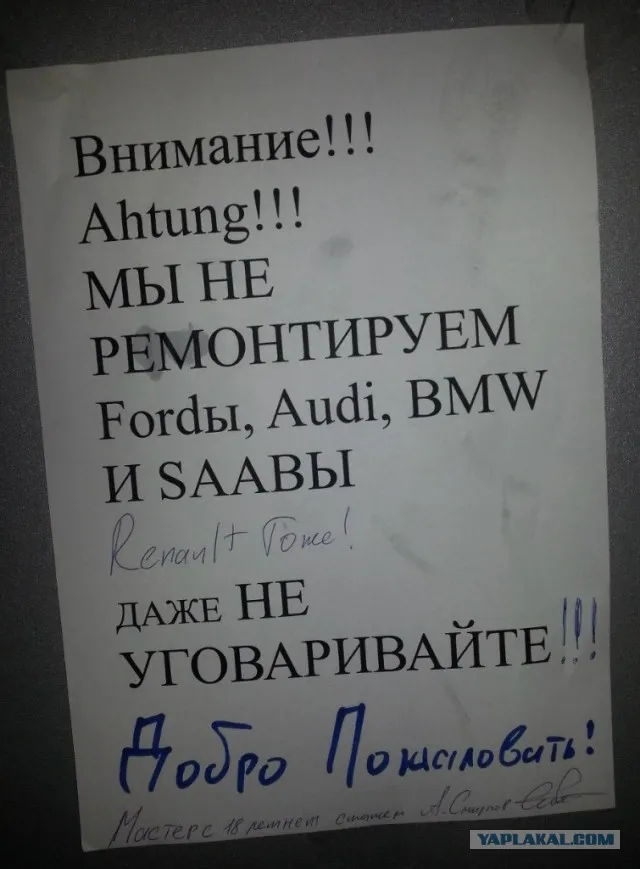 Внимание!!!
Ahtung!!!
МЫ НЕ
РЕМОНТИРУЕМ
Fordы, Audi, BMW
И SAABЫ
Renault Тоже!
ДАЖЕ НЕ
УГОВАРИВАЙТЕ!!!
Добро Пожаловать!
Мастер с 18 летнем стажем А.Смирнов
YAPLAKAL.COM